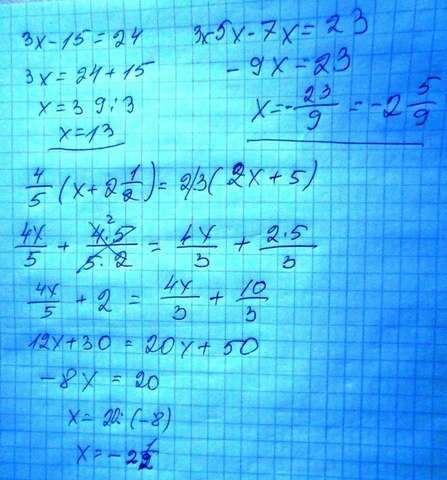 3x-15=24
3x=24+15
x=39:3
x=13
3x5x-7x=23
-9x=23
x=-23/9=-2 5/9
4/5(x+2 1/2)=2/3(2x+5)
4x/5+4·5/5·2=4x/3+2·5/3
2
4x/5+2=4x/3+10/3
12x+30=20x+50
-8x=20
x=20:(-8)
x=-2 1/2